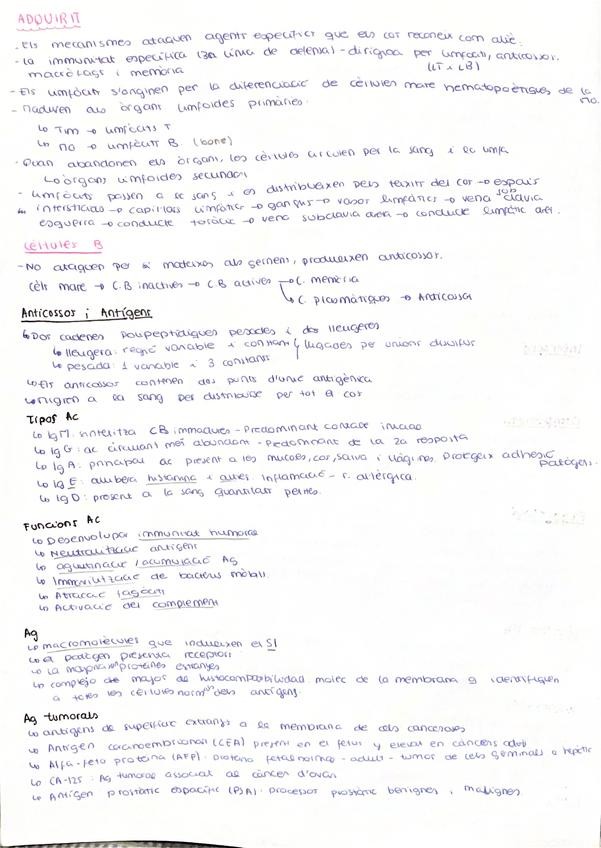 ADQUIRIT
- Els mecanismes ataquen agents específics que els cos reconeix com aliè.
- La immunitat específica (3a línia de defensa) - dirigida per limfòcits, anticossos.
macròfags i memòria (LT i LB)
- Els limfòcits s'originen per la diferenciació de cèl·lules mare hematopoètiques de la mo.
- Maduren als òrgans limfoides primaris.
↳ Tim → limfòcits T
↳ MO → limfòcits B (bone)
- Quan abandonen els òrgans, les cèl·lules circulen per la sang i la limfa
↳ òrgans limfoides secundaris
- limfòcits passen a la sang i es distribueixen pels teixits del cos → espais
intersticials → capil·lars limfàtics → ganglis → vasos limfàtics → vena subclàvia
esquerra → conducte toràcic → vena subclàvia dreta → conducte limfàtic dret.
Cèl·lules B
- No ataquen per si mateixes als gèrmens, produeixen anticossos.
Cèls mare → C.B inactives → C B actives → C. memòria
↳ C. plasmàtiques → Anticossos
Anticossos i Antígens
↳ Dos cadenes polipeptídiques pesades i dos lleugeres
↳ lleugera: regió variable i constant } lligades per unions disulfur
↳ pesada: 1 variable i 3 constants
↳ Els anticossos contenen dos punts d'unió antigènica
↳ Migren a la sang per distribuirse per tot el cos
Tipos Ac
↳ IgM: sintetitza CB immadures - Predominant contacte inicial
↳ IgG: ac circulant més abundant - Predominant de la 2a resposta
↳ IgA: principal ac present a les mucoses, cor, saliva i llàgrimes. Protegeix adhesió patògens.
↳ IgE: allibera histamina i altres. Inflamació - r. al·lèrgica.
↳ IgD: present a la sang quantitats petites.
Funcions Ac
↳ Desenvolupar immunitat humoral
↳ Neutralització antígens
↳ aglutinació / acumulació Ag
↳ Immovilització de bacteris mòbils.
↳ Atracció fagòcits
↳ Activació del complement
Ag
↳ macromolècules que indueixen el SI
↳ el patògen presenta receptors
↳ la majoria són proteïnes estranyes
↳ complejo de major de histocompatibilidad. molec de la membrana q identifiquen
a totes les cèl·lules normals dels antígens.
Ag tumorals
↳ antígens de superfície estranys a la membrana de cèls canceroses
↳ Antígen carcinoembrionari (CEA) present en el fetus y elevat en càncers adult
↳ Alfa-feto proteïna (AFP). proteïna fetal normal - adult - tumor de cèls germinals o hepàtic
↳ CA-125: Ag tumoral associat al càncer d'ovari
↳ Antígen prostàtic específic (PSA). processos prostàtic benignes i malignes.